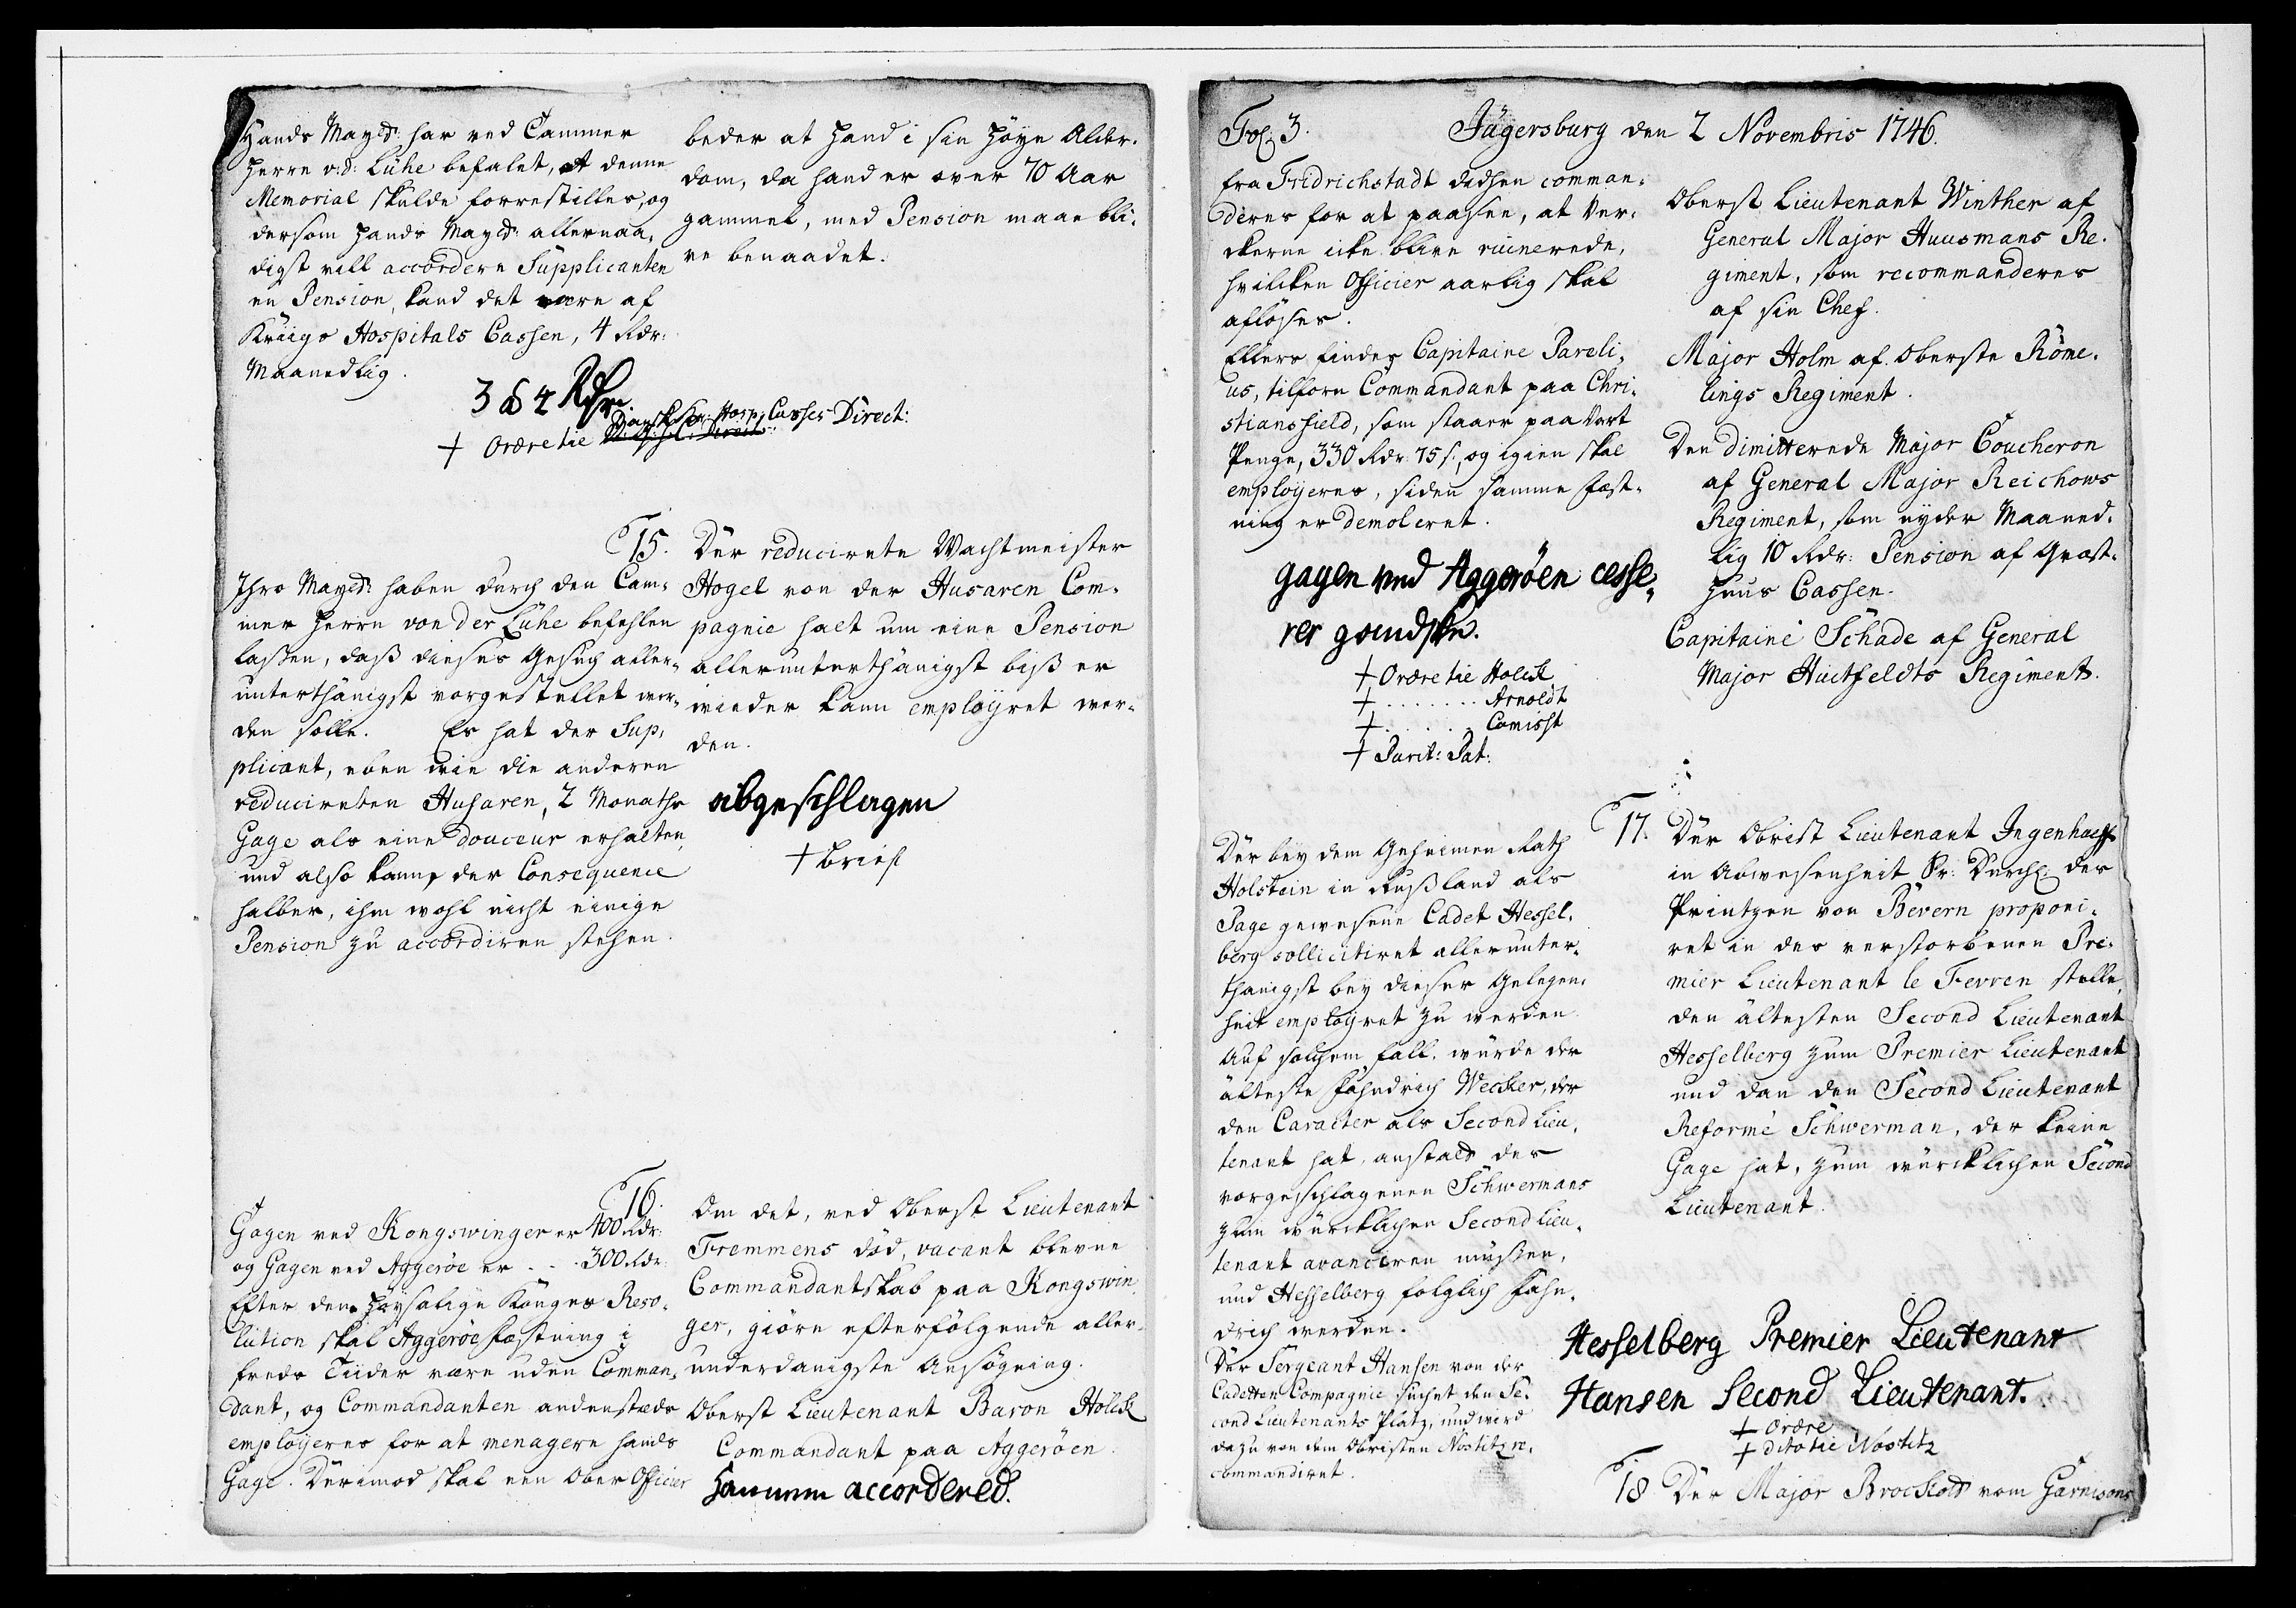 Hands Mayed: har ved Cammer
Herre v: d: Lühe befalet, at denne
Memorial skulde forrestilles, og
dersom Hands Mayed: allernaa„
digst vill accordere Supplicanten
en Pension, kand det være af
Kriigs Hospitals Cassen, 4 Rdr:
Maanedlig.
beder at hand i sin høye Alder„
dom, da hand er over 70 Aar
gammel, med Pension maae bli„
ve benaadet.
3 à 4 Rdr.
Dansk Kr: Hosp: Casses Direct:
+ Ordre tie
15.
Ihro Mayed: haben durch den Cam„
mer Herrn von der Lühe befehlen
lassen, daß dieses Gesuch aller„
unterthänigst vorgestellet wer„
den solle. Es hat der Sup„
plicant, eben wie die anderen
reducireten Husaren, 2 Monaths
Gage als eine douceur erhalten,
und also kann, der Consequence
halber, ihm wohl nicht einige
Pension zu accordiren stehen.
Der reducirete Wachtmeister
Hogel von der Husaren Com„
pagnie halt um eine Pension
allerunterthänigst biß er
wieder kann employret wer„
den.
abgeschlagen
+ brief
16.
Gagen ved Kongswinger er 400 Rdr:
og Gagen ved Aggerøe er . . . 300 Rdr:
Efter den høysalige Konges Reso„
lution skal Aggerøe Fæstning i
freds Tiider være uden Comman„
dant, og Commandanten andenstæds
employeres for at menagere hands
Gage. Derimod skal een Ober Officier
Om det, ved Oberst Lieutenant
Fremmens død, vacant blevne
Commandantskab paa Kongswin„
ger, giøre efterfölgende aller„
underdanigste Ansøgning.
Oberst Lieutenant Baron Holck
Commandant paa Aggerøen.
Hannem accordered.
Fol. 3.
Jägersburg den 2 Novembris 1746.
fra Fridrichstadt didhen comman„
deres for at paasee, at Ver„
ckerne icke blive ruinerede,
hvilcken Officier aarlig skal
afløses.
Ellers findes Capitaine Pareli„
us, tilforn Commandant paa Chri„
stiansfield, som staaer paa Vart
Penge, 330 Rdr: 75 s:, og igien skal
employeres, siden samme Fæst„
ning er demoleret.
gagen ved Aggerøen cesse„
rer gandske.
+ Ordre tie Holck
+ . . . . . . . Arnoldt
+ . . . . . . Comisst
+ Parit: Pat:
Oberst Lieutenant Winther af
General Major Huusmans Re„
giment, som recommanderes
af sin Chef.
Major Holm af Oberste Röme„
lings Regiment.
Den dimitterede Major Coucheron
af General Major Reichows
Regiment, som nyder Maaned„
lig 10 Rdr: Pension af Qvæst„
huus Cassen.
Capitaine Schade af General
Major Huitfeldts Regiment.
17.
Der bey dem Geheimen Rath
Holstein in Rußland als
Page gewesene Cadet Hessel„
berg sollicitiret allerunter„
thänigst bey dieser Gelegen„
heit employret zu werden.
Auf solchem fall, würde der
älteste Fähndrich Wecker, der
den Caracter als Second Lieu„
tenant hat, anstatt des
vorgeschlagenen Schwermans
zum würcklichen Second Lieu„
tenant avanciren müssen,
und Hesselberg folglich Fähn„
drich werden.
Der Sergeant Hansen von der
Cadetten Compagnie suchet den Se„
cond Lieutenants Platz, und wird
dazu von dem Obristen Nostitz re„
commandiret.
Der Obrist Lieutenant Ingenhaeff
in Abwesenheit Sr: Durchl: des
Printzen von Bevern proponi„
ret in des verstorbenen Pre„
mier Lieutenant le Fevren stelle,
den ältesten Second Lieutenant
Hesselberg zum Premier Lieutenant
und dan den Second Lieutenant
Reformé Schwerman, der keine
Gage hat, zum würcklichen Second
Lieutenant.
Hesselberg Premier Lieutenant
Hansen Second Lieutenant.
+ Ordre
+ dito tie Nostitz
18 Der Major Brockdorff vom Garnisons